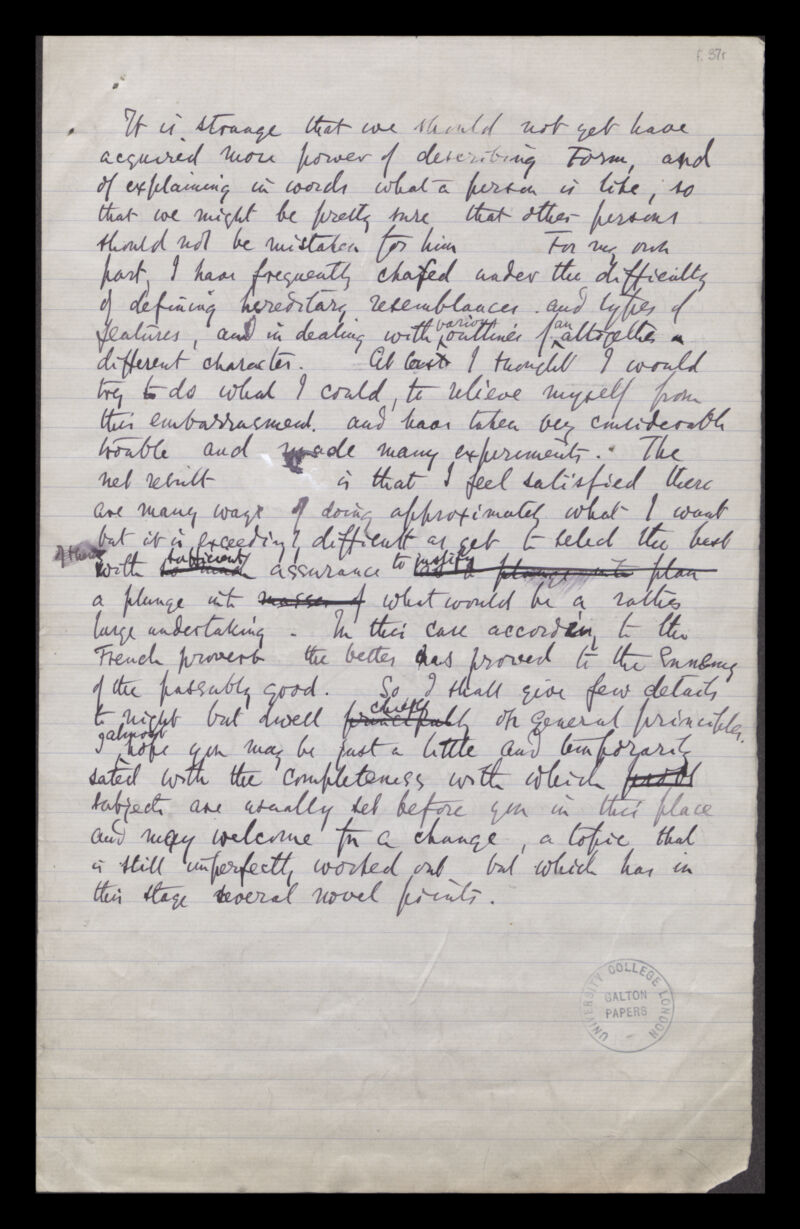 f. 37r
It is strange that we should not yet have
acquired more power of describing Form, and
of explaining in words what a person is like, so
that we might be pretty sure that other persons
should not be mistaken for him For my own
part, I have frequently chafed under the difficulty
of defining hereditary resemblances and types of
features, and in dealing with various outlines of an altogether
different character. At last I thought I would
try to do what I could, to relieve myself from
this embarrasment. and have taken very considerable
trouble and made many experiments. The
net result is that I feel satisfied there
are many ways of doing approximately what I want
but it is exceedingly difficult as yet to select the best
of them
with so much sufficient assurance to justify as a plunge into plan
a plunge into masses of what would be a rather
large undertaking. In this case according to the
French proverb the better has proved to the Ennemy
of the passably good. So I shall give few details
to night but dwell principally chiefly on general principles.
I almost hope you may be just a little and temporarily
sated with the completeness with which
subjects are usually set before you in this place
and may welcome for a change, a topic that
is still imperfectly worked out but which has in
this stage several novel points.
UNIVERSITY COLLEGE LONDON
GALTON
PAPERS